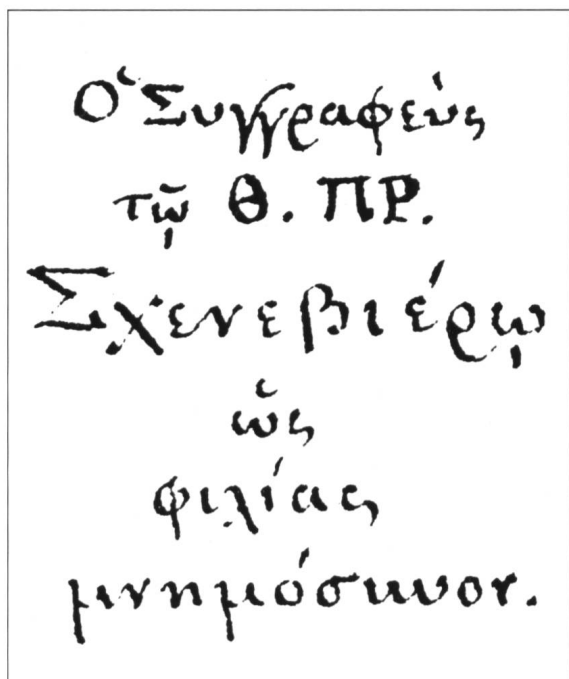 Ὁ Συγγραφεύς
τῷ Θ. ΠΡ.
Σχενεβιέρῳ
ὡς
φιλίας
μνημόσυνον.